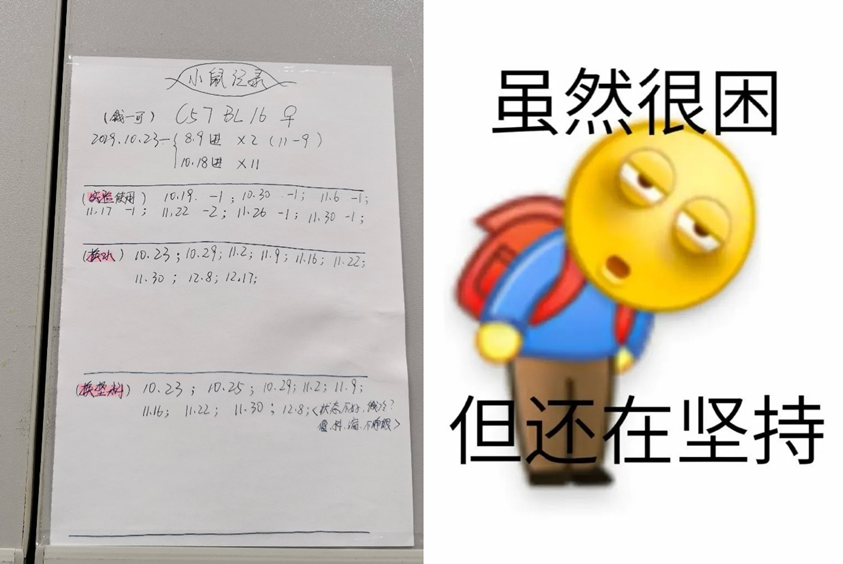 小鼠记录
C57 BL16 ♀
2019.10.23— 8.9进 ×2 (11-9)
10.18进 ×11
(实验使用) 10.19. -1; 10.30 -1; 11.6 -1;
11.17 -1; 11.22 -2; 11.26 -1; 11.30 -1;
(换水) 10.23; 10.29; 11.2; 11.9; 11.16; 11.22;
11.30; 12.8; 12.17;
(换垫料) 10.23; 10.25; 10.29; 11.2; 11.9;
11.16; 11.22; 11.30; 12.8; <状态不好,
虽然很困
但还在坚持